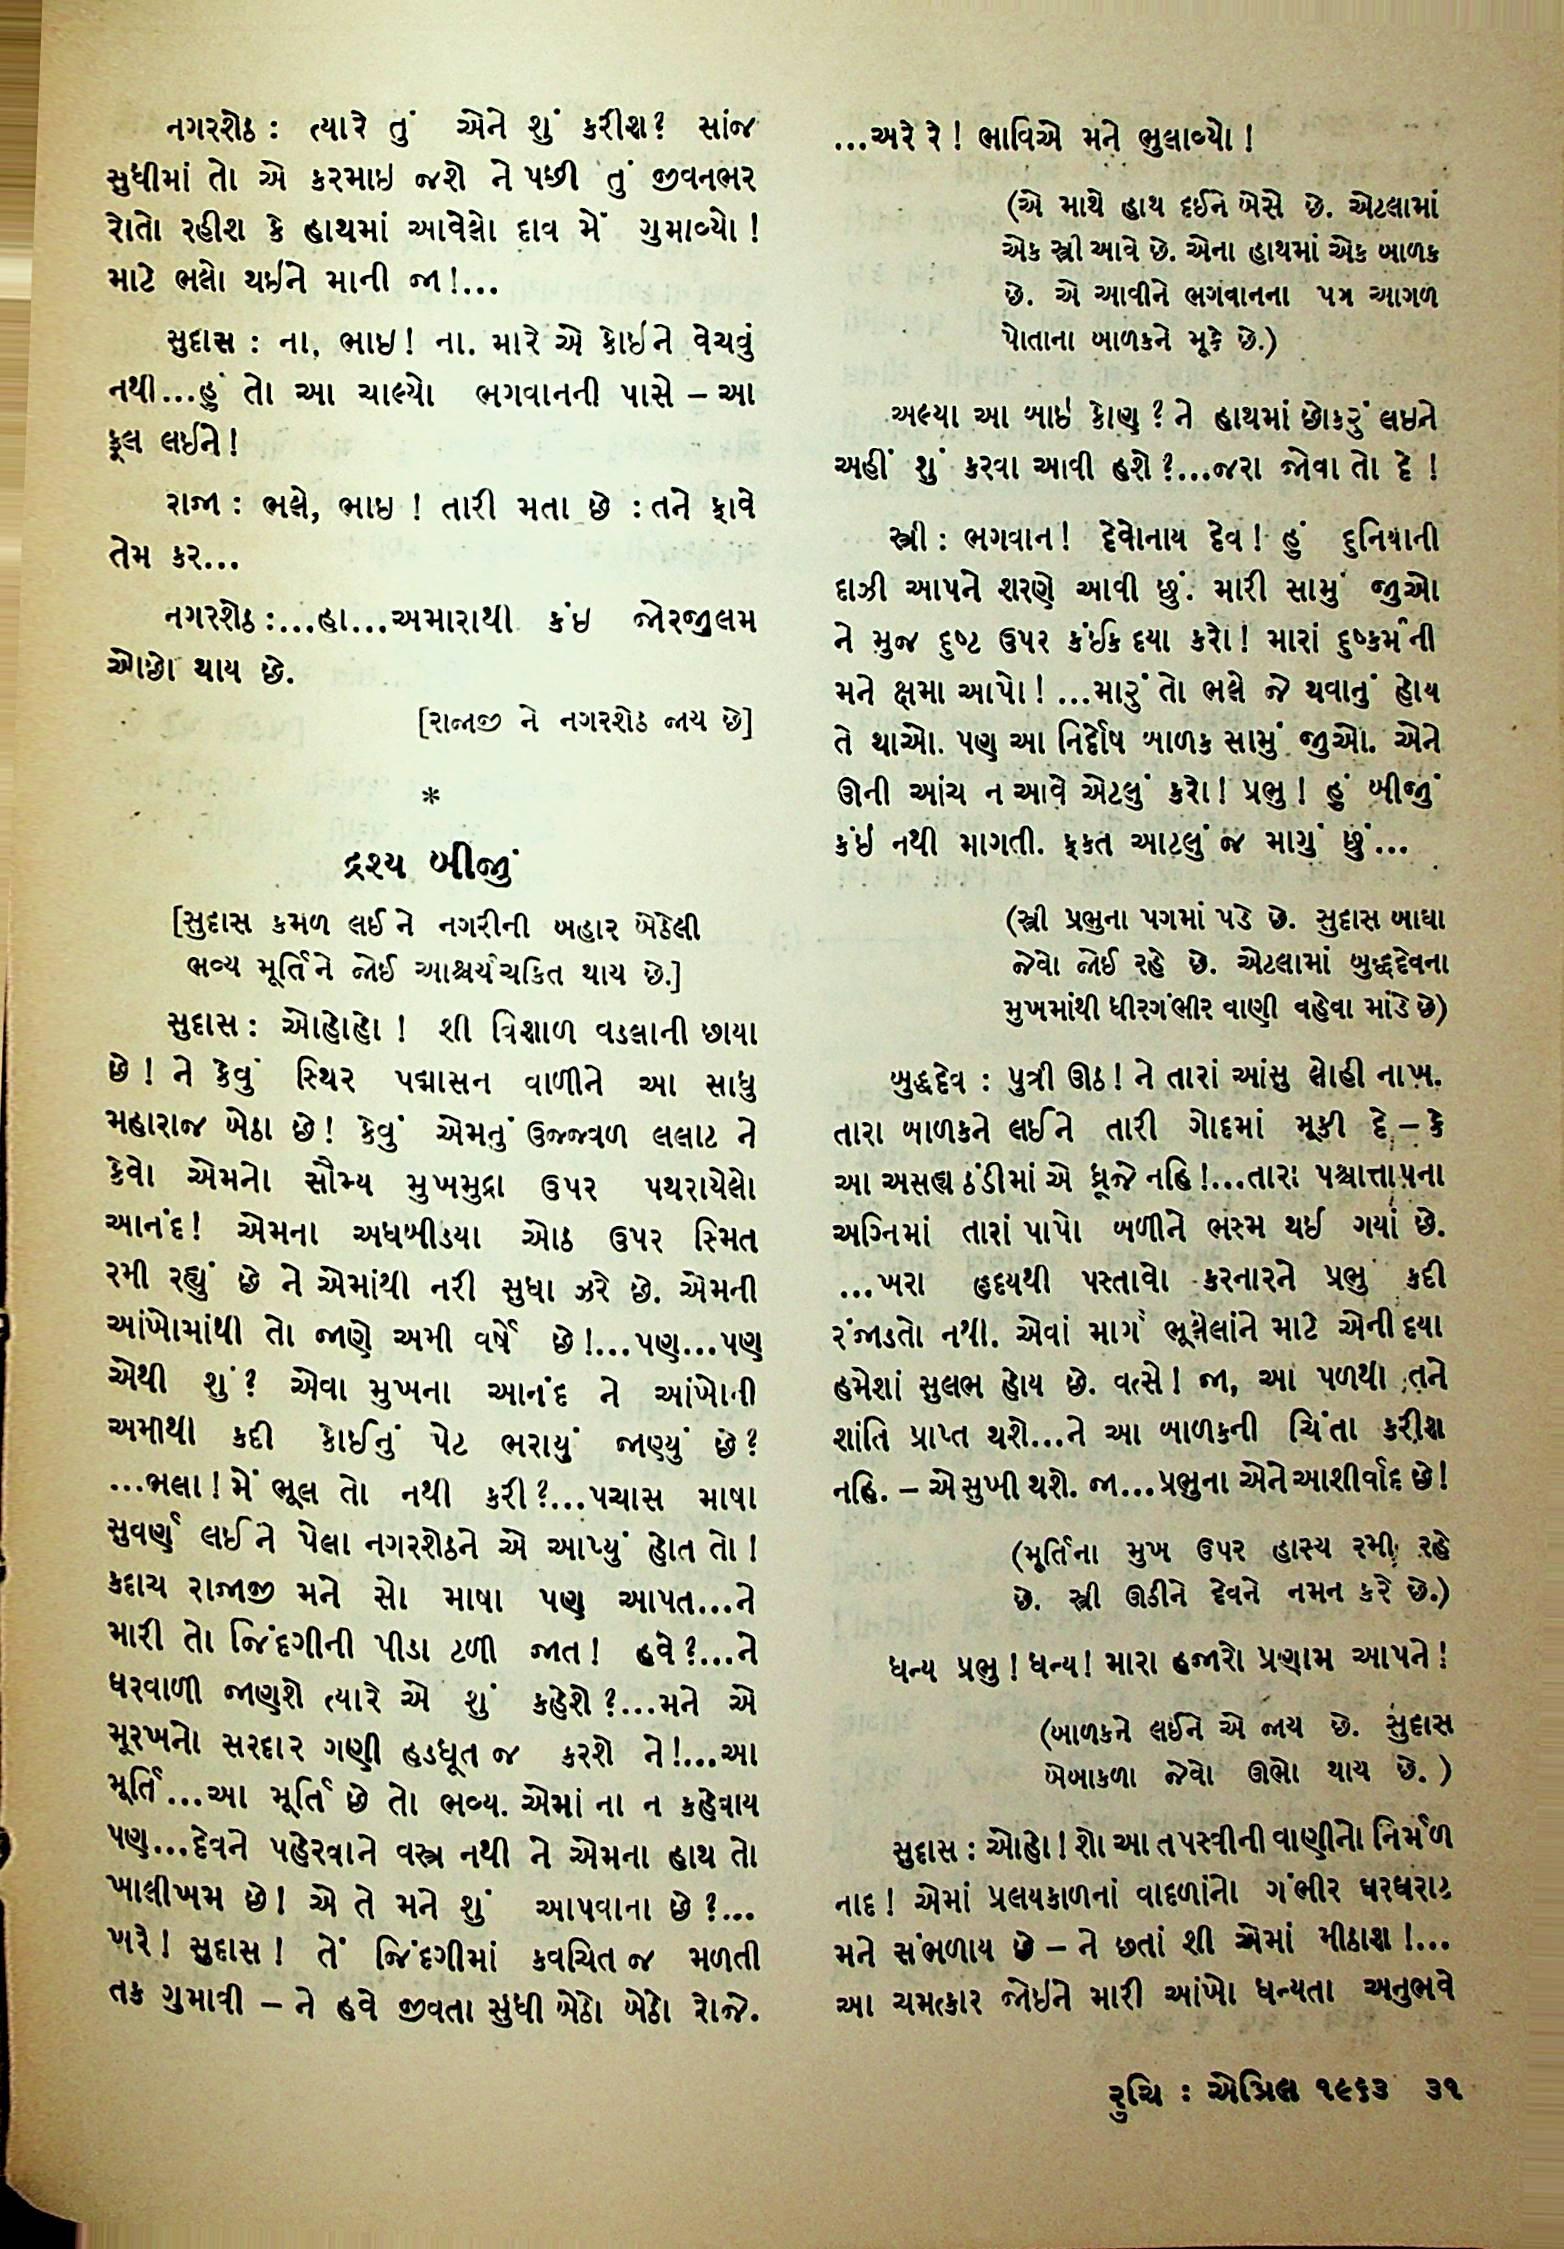 નગરશેઠ : ત્યારે તું એને શું કરીશ? સાંજ
સુધીમાં તો એ કરમાઇ જશે ને પછી તું જીવનભર
રોતો રહીશ કે હાથમાં આવેલો દાવ મેં ગુમાવ્યો!
માટે ભલો થઈને માની જા!...
સુદાસ : ના, ભાઇ! ના. મારે એ કોઇને વેચવું
નથી...હું તો આ ચાલ્યો ભગવાનની પાસે – આ
ફૂલ લઈને!
રાજા : ભલે, ભાઇ ! તારી મતા છે : તને ફાવે
તેમ કર...
નગરશેઠ :...હા...અમારાથી કંઇ જોરજુલમ
ઓછો થાય છે.
[રાજાજી ને નગરશેઠ જાય છે]
*
દ્રશ્ય બીજું
[સુદાસ કમળ લઈને નગરીની બહાર બેઠેલી
ભવ્ય મૂર્તિને જોઈ આશ્ચર્યચકિત થાય છે.]
સુદાસ : ઓહોહો ! શી વિશાળ વડલાની છાયા
છે ! ને કેવું સ્થિર પદ્માસન વાળીને આ સાધુ
મહારાજ બેઠા છે! કેવું એમનું ઉજ્જ્વળ લલાટ ને
કેવો એમનો સૌમ્ય મુખમુદ્રા ઉપર પથરાયેલો
આનંદ! એમના અધબીડયા ઓઠ ઉપર સ્મિત
રમી રહ્યું છે ને એમાંથી નરી સુધા ઝરે છે. એમની
આંખોમાંથી તો જાણે અમી વર્ષે છે!...પણ...પણ
એથી શું? એવા મુખના આનંદ ને આંખોની
અમીથી કદી કોઈનું પેટ ભરાયું જાણ્યું છે?
...ભલા! મેં ભૂલ તો નથી કરી?...પચાસ માષા
સુવર્ણ લઈને પેલા નગરશેઠને એ આપ્યું હોત તો!
કદાચ રાજાજી મને સો માષા પણ આપત...ને
મારી તો જિંદગીની પીડા ટળી જાત! હવે?...ને
ઘરવાળી જાણશે ત્યારે એ શું કહેશે?...મને એ
મૂરખનો સરદાર ગણી હડધૂત જ કરશે ને!...આ
મૂર્તિ...આ મૂર્તિ છે તો ભવ્ય. એમાં ના ન કહેવાય
પણ...દેવને પહેરવાને વસ્ત્ર નથી ને એમના હાથ તો
ખાલીખમ છે! એ તે મને શું આપવાના છે?...
ખરે! સુદાસ! તેં જિંદગીમાં કવચિત જ મળતી
તક ગુમાવી – ને હવે જીવતા સુધી બેઠો બેઠો રોજે.
...અરે રે! ભાવિએ મને ભુલાવ્યો!
(એ માથે હાથ દઈને બેસે છે. એટલામાં
એક સ્ત્રી આવે છે. એના હાથમાં એક બાળક
છે. એ આવીને ભગવાનના પગ આગળ
પોતાના બાળકને મૂકે છે.)
અલ્યા આ બાઈ કોણ? ને હાથમાં છોકરું લઇને
અહીં શું કરવા આવી હશે?...જરા જોવા તો દે !
સ્ત્રી : ભગવાન! દેવોનાય દેવ! હું દુનિયાની
દાઝી આપને શરણે આવી છું. મારી સામું જુઓ
ને મુજ દુષ્ટ ઉપર કંઈક દયા કરો! મારાં દુષ્કર્મની
મને ક્ષમા આપો! ...મારું તો ભલે જે થવાનું હોય
તે થાઓ. પણ આ નિર્દોષ બાળક સામું જુઓ. એને
ઊની આંચ ન આવે એટલું કરો! પ્રભુ! હું બીજું
કંઈ નથી માગતી. ફકત આટલું જ માગું છું...
(સ્ત્રી પ્રભુના પગમાં પડે છે. સુદાસ બાઘા
જેવો જોઈ રહે છે. એટલામાં બુદ્ધદેવના
મુખમાંથી ધીરગંભીર વાણી વહેવા માંડે છે)
બુદ્ધદેવ : પુત્રી ઊઠ! ને તારાં આંસુ લોહી નાખ.
તારા બાળકને લઈને તારી ગોદમાં મૂકી દે – કે
આ અસહ્ય ઠંડીમાં એ ધ્રૂજે નહિ!...તારા પશ્ચાત્તાપના
અગ્નિમાં તારાં પાપો બળીને ભસ્મ થઈ ગયાં છે.
...ખરા હૃદયથી પસ્તાવો કરનારને પ્રભુ કદી
રંજાડતો નથી. એવાં માર્ગ ભૂલેલાંને માટે એની દયા
હમેશાં સુલભ હોય છે. વત્સે! જા, આ પળથી તને
શાંતિ પ્રાપ્ત થશે...ને આ બાળકની ચિંતા કરીશ
નહિ. – એ સુખી થશે. જા...પ્રભુના એને આશીર્વાદ છે!
(મૂર્તિના મુખ ઉપર હાસ્ય રમી રહે
છે. સ્ત્રી ઊઠીને દેવને નમન કરે છે.)
ધન્ય પ્રભુ! ધન્ય! મારા હજારો પ્રણામ આપને!
(બાળકને લઈને એ જાય છે. સુદાસ
બેબાકળા જેવો ઊભો થાય છે.)
સુદાસ : ઓહો! શો આ તપસ્વીની વાણીનો નિર્મળ
નાદ! એમાં પ્રલયકાળનાં વાદળાંનો ગંભીર ઘરઘરાટ
મને સંભળાય છે – ને છતાં શી એમાં મીઠાશ!...
આ ચમત્કાર જોઇને મારી આંખો ધન્યતા અનુભવે
રુચિ : એપ્રિલ ૧૯૬૩ ૩૧